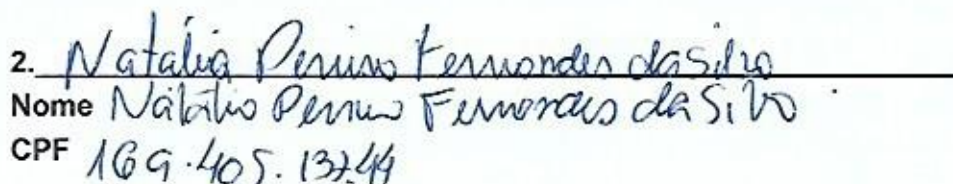 2. Natália Penino Fernandes da Silva
Nome Natália Penino Fernandes da Silva
CPF 169.405.137.44